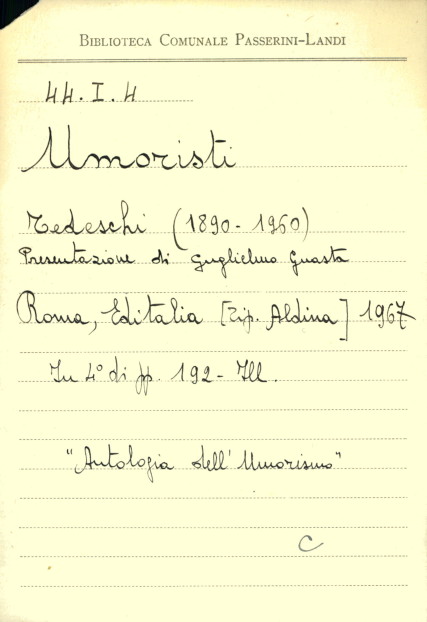 Biblioteca Comunale Passerini-Landi
44. I. 4
Umoristi
Tedeschi (1890-1960)
Presentazione di Guglielmo Guasta
Roma, Editalia [Tip. Aldina] 1967
In 4° di pp. 192 - Ill.
"Antologia dell'Umorismo"
C